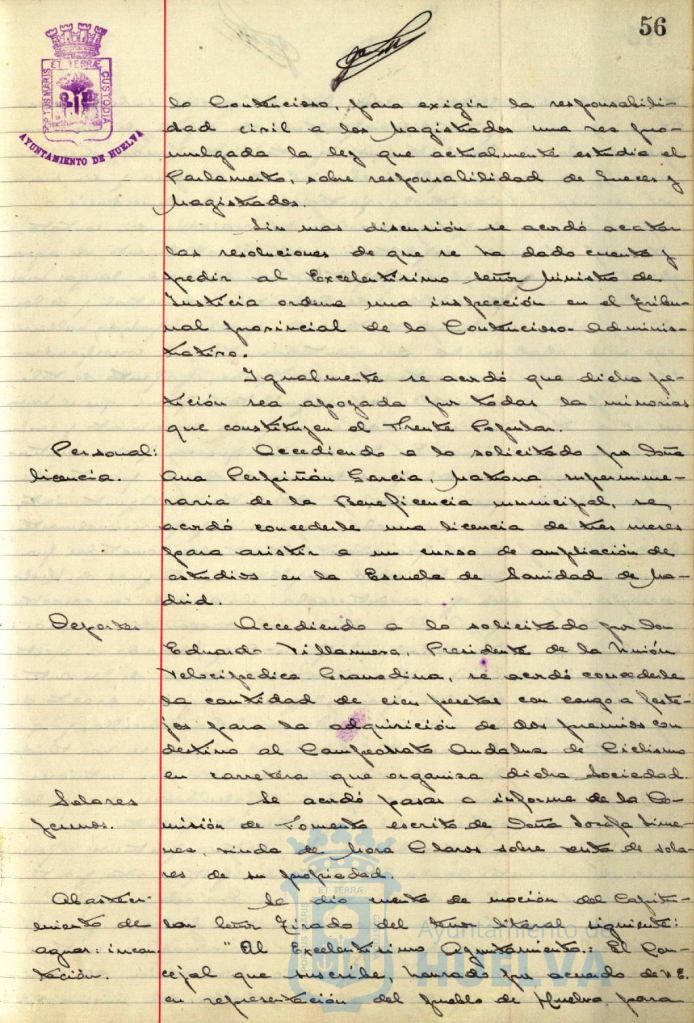 56
PORTUS MARIS ET TERRÆ CUSTODIA
AYUNTAMIENTO DE HUELVA
lo Contencioso, para exigir la responsabili-
dad civil a los Magistrados una vez pro-
mulgada la ley que actualmente estudia el
Parlamento, sobre responsabilidad de Jueces y
Magistrados.
Sin mas discusión se acordó acatar
las resoluciones de que se ha dado cuenta y
pedir al Excelentísimo Señor Ministro de
Justicia ordena una inspección en el Tribu-
nal provincial de lo Contencioso-Adminis-
trativo.
Igualmente se acordó que dicha pe-
tición sea apoyada por todas la minorias
que constituyen el Frente Popular.
Personal:
licencia.
Accediendo a lo solicitado por Doña
Ana Perpiñán Garcia, Matrona supernume-
raria de la Beneficencia municipal, se
acordó concederle una licencia de tres meses
para asistir a un curso de ampliación de
estudios en la Escuela de Sanidad de Ma-
drid.
Deportes
Accediendo a lo solicitado por Don
Eduardo Villanueva, Presidente de la Unión
Velocipedica Granadina, se acordó concederle
la cantidad de cien pesetas con cargo a feste-
jos para la adquisición de dos premios con
destino al Campeonato Andaluz de Ciclismo
en carretera que organiza dicha Sociedad.
Solares
yermos.
Se acordó pasar a informe de la Co-
misión de Fomento escrito de Doña Josefa Jime-
nez, viuda de Mora Claros sobre venta de sola-
res de su propiedad.
Abasteci-
miento de
aguas: incau-
tación.
Se dio cuenta de moción del Capitu-
lar Señor Tirado del tenor literal siguiente:
"Al Excelentísimo Ayuntamiento.: El Con-
cejal que suscribe, honrado por acuerdo de V.E.
en representación del pueblo de Huelva, para
Ayuntamiento de
HUELVA